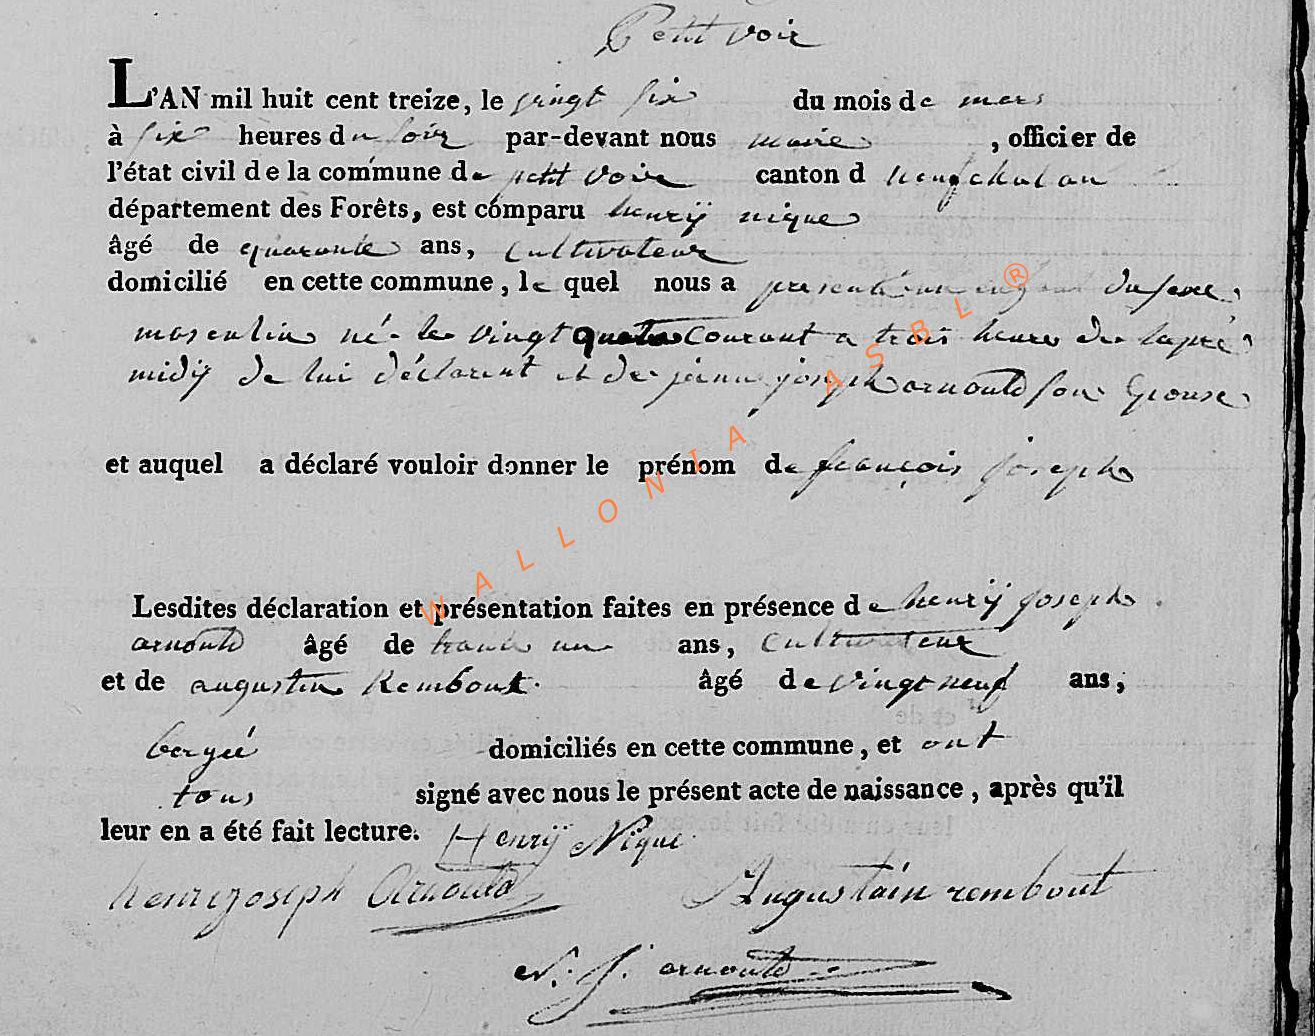 Petit voir
L'AN mil huit cent treize, le vingt six du mois de mars
à six heures du soir par-devant nous maire , officier de
l'état civil de la commune de petit voir canton d neufchatau
département des Forêts, est comparu henrÿ nique
âgé de quarante ans, cultivateur
domicilié en cette commune, le quel nous a presenté un enfant du sexe
masculin né le vingt quatre courant a trois heure de laprè
midÿ de lui déclarent et de jenne joseph arnould son Epouse
et auquel a déclaré vouloir donner le prénom de françois joseph
Lesdites déclaration et présentation faites en présence de henrÿ joseph
arnould âgé de trante un ans, cultivateur
et de augustin Rembout âgé de vingt neuf ans,
bergé domiciliés en cette commune, et ont
tous signé avec nous le présent acte de naissance, après qu'il
leur en a été fait lecture. Henrÿ Nique
henrijoseph Arnould Augustain rembout
N. J. arnould
WALLONIA ASBL ®